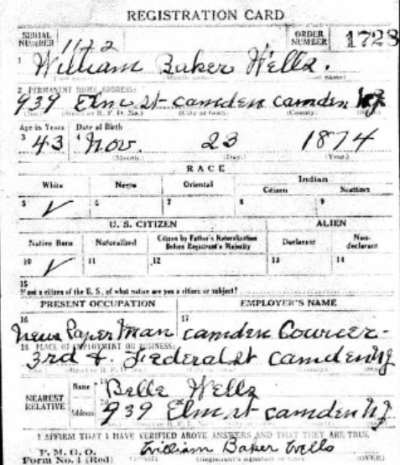 REGISTRATION CARD
SERIAL NUMBER 1172 ORDER NUMBER 1728
1 William Baker Wells.
2 PERMANENT HOME ADDRESS:
939 Elm st camden camden NJ
Age in Years Date of Birth
3 43 4 Nov. 23 1874
(Month.) (Day.) (Year.)
RACE
White Negro Oriental Indian
Citizen Noncitizen
5 ✓ 6 7 8 9
U. S. CITIZEN ALIEN
Native Born Naturalized Citizen by Father's Naturalization Before Registrant's Majority Declarant Non-declarant
10 ✓ 11 12 13 14
15
If not a citizen of the U. S., of what nation are you a citizen or subject?
PRESENT OCCUPATION EMPLOYER'S NAME
16 News Paper Man 17 Camden Courier-
18 PLACE OF EMPLOYMENT OR BUSINESS:
3rd & Federal st Camden NJ
NEAREST RELATIVE
Name 19 Belle Wells
Address 20 939 Elm st camden NJ
I AFFIRM THAT I HAVE VERIFIED ABOVE ANSWERS AND THAT THEY ARE TRUE.
P. M. G. O.
Form No. 1 (Red) William Baker Wells (OVER)